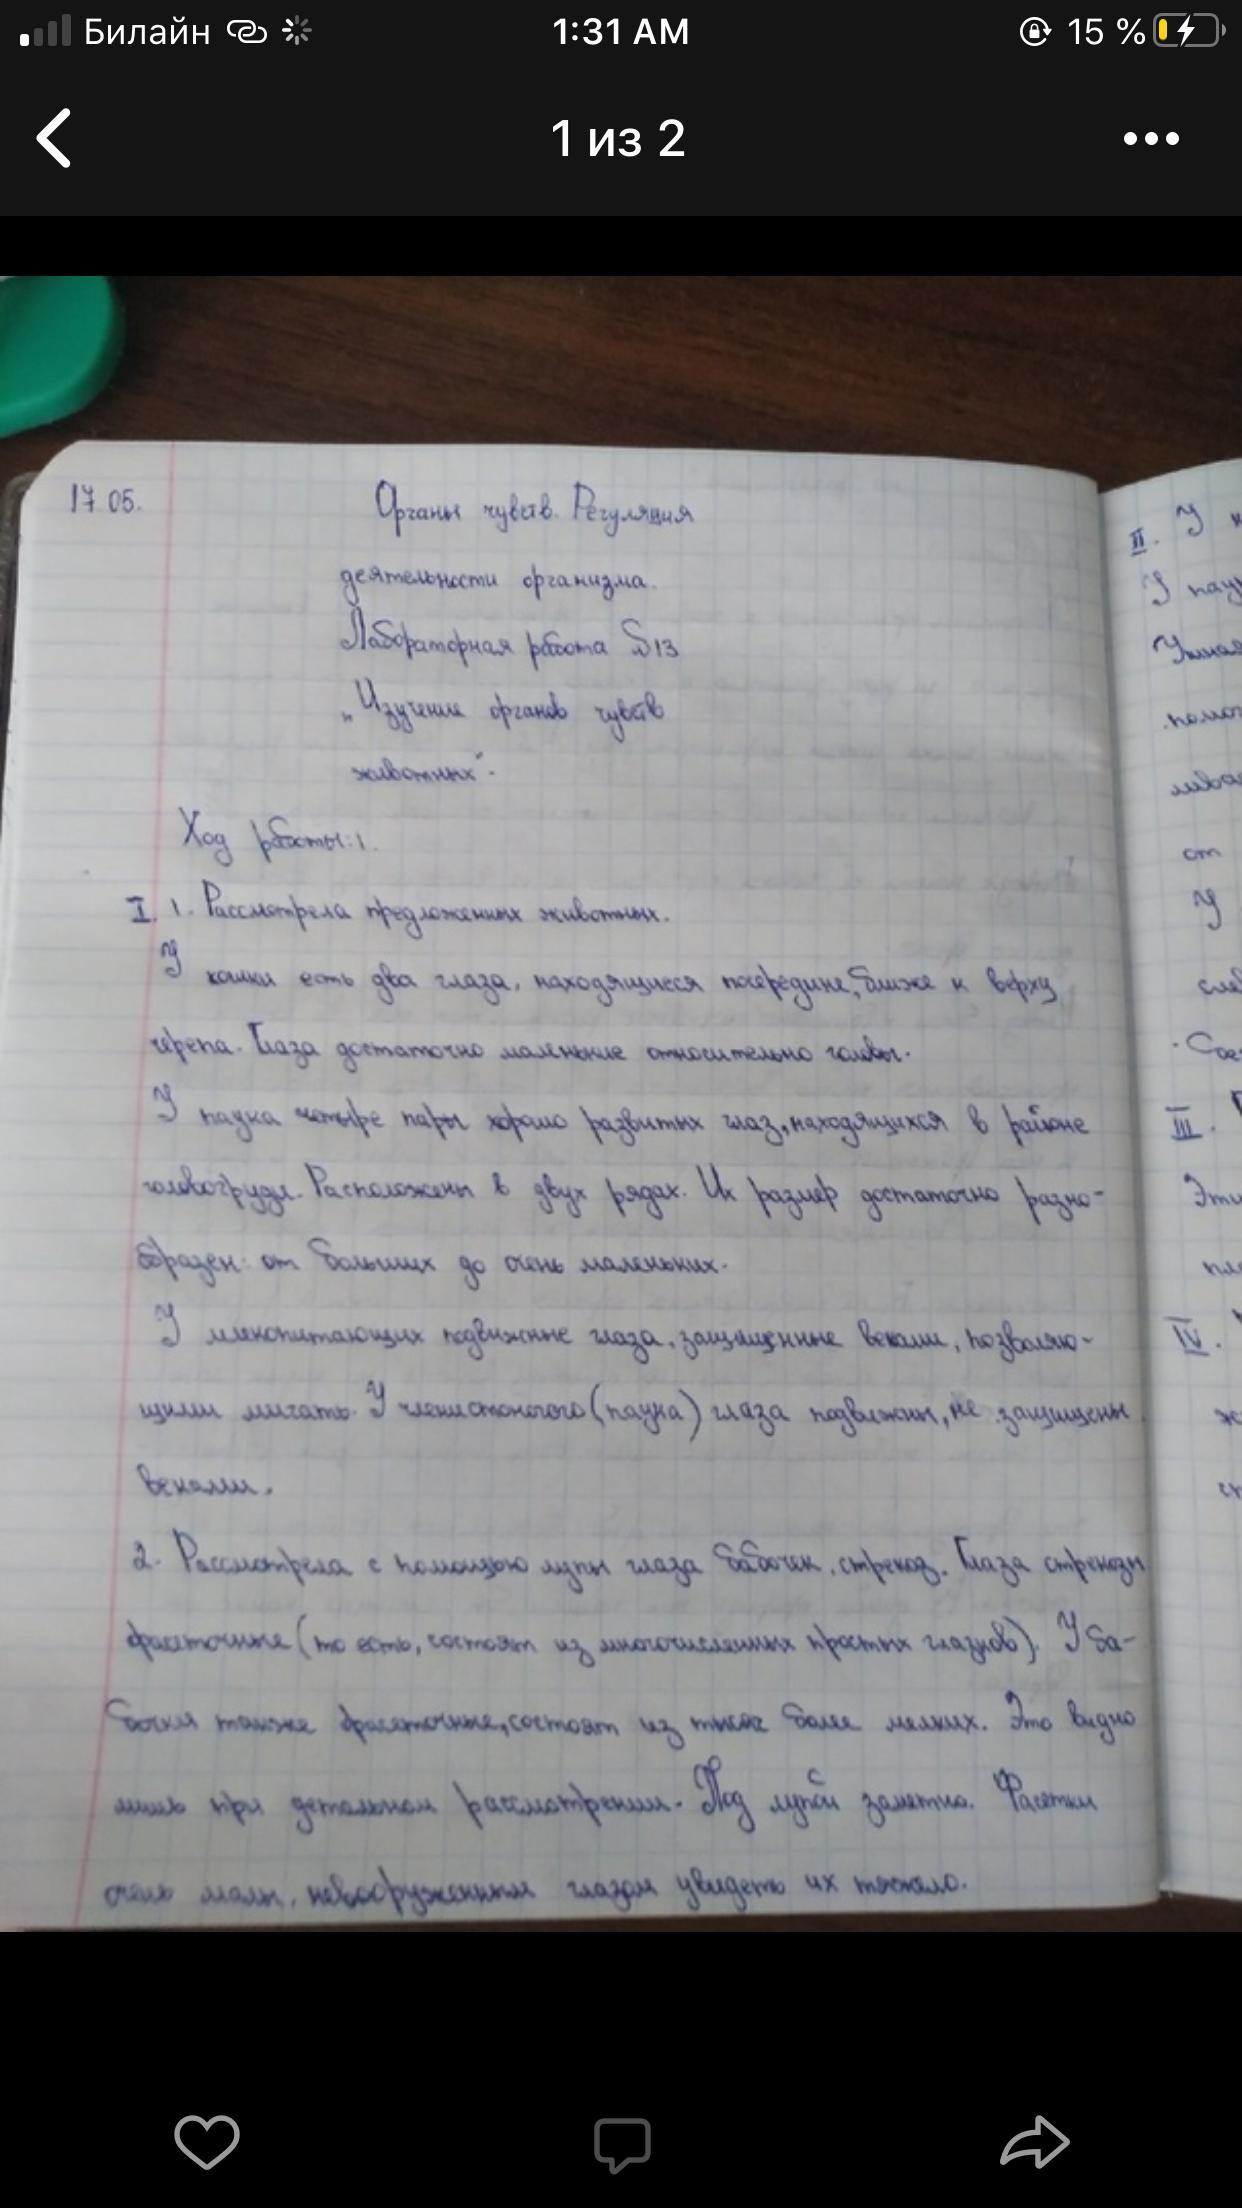 Билайн 1:31 AM 15 %
1 из 2
17 05. Органы чувств. Регуляция
деятельности организма.
Лабораторная работа №13
„Изучение органов чувств
животных".
Ход работы: 1.
I. 1. Рассмотрела предложенных животных.
У кошки есть два глаза, находящиеся посередине, ближе к верху
черепа. Глаза достаточно маленькие относительно головы.
У паука четыре пары хорошо развитых глаз, находящихся в районе
головогруди. Расположены в двух рядах. Их размер достаточно разно-
образен: от больших до очень маленьких.
У млекопитающих подвижные глаза, защищенные веками, позволяю-
щими мигать. У членистоногого (паука) глаза подвижны, не защищены
веками.
2. Рассмотрела с помощью лупы глаза бабочек, стрекоз. Глаза стрекозы
фасеточные (то есть, состоят из многочисленных простых глазков). У ба-
бочки также фасеточные, состоят из тысяч более мелких. Это видно
лишь при детальном рассмотрении. Под лупой заметно. Фасетки
очень малы, невооруженным глазом увидеть их тяжело.
II. У
У
от
У
III.
IV.